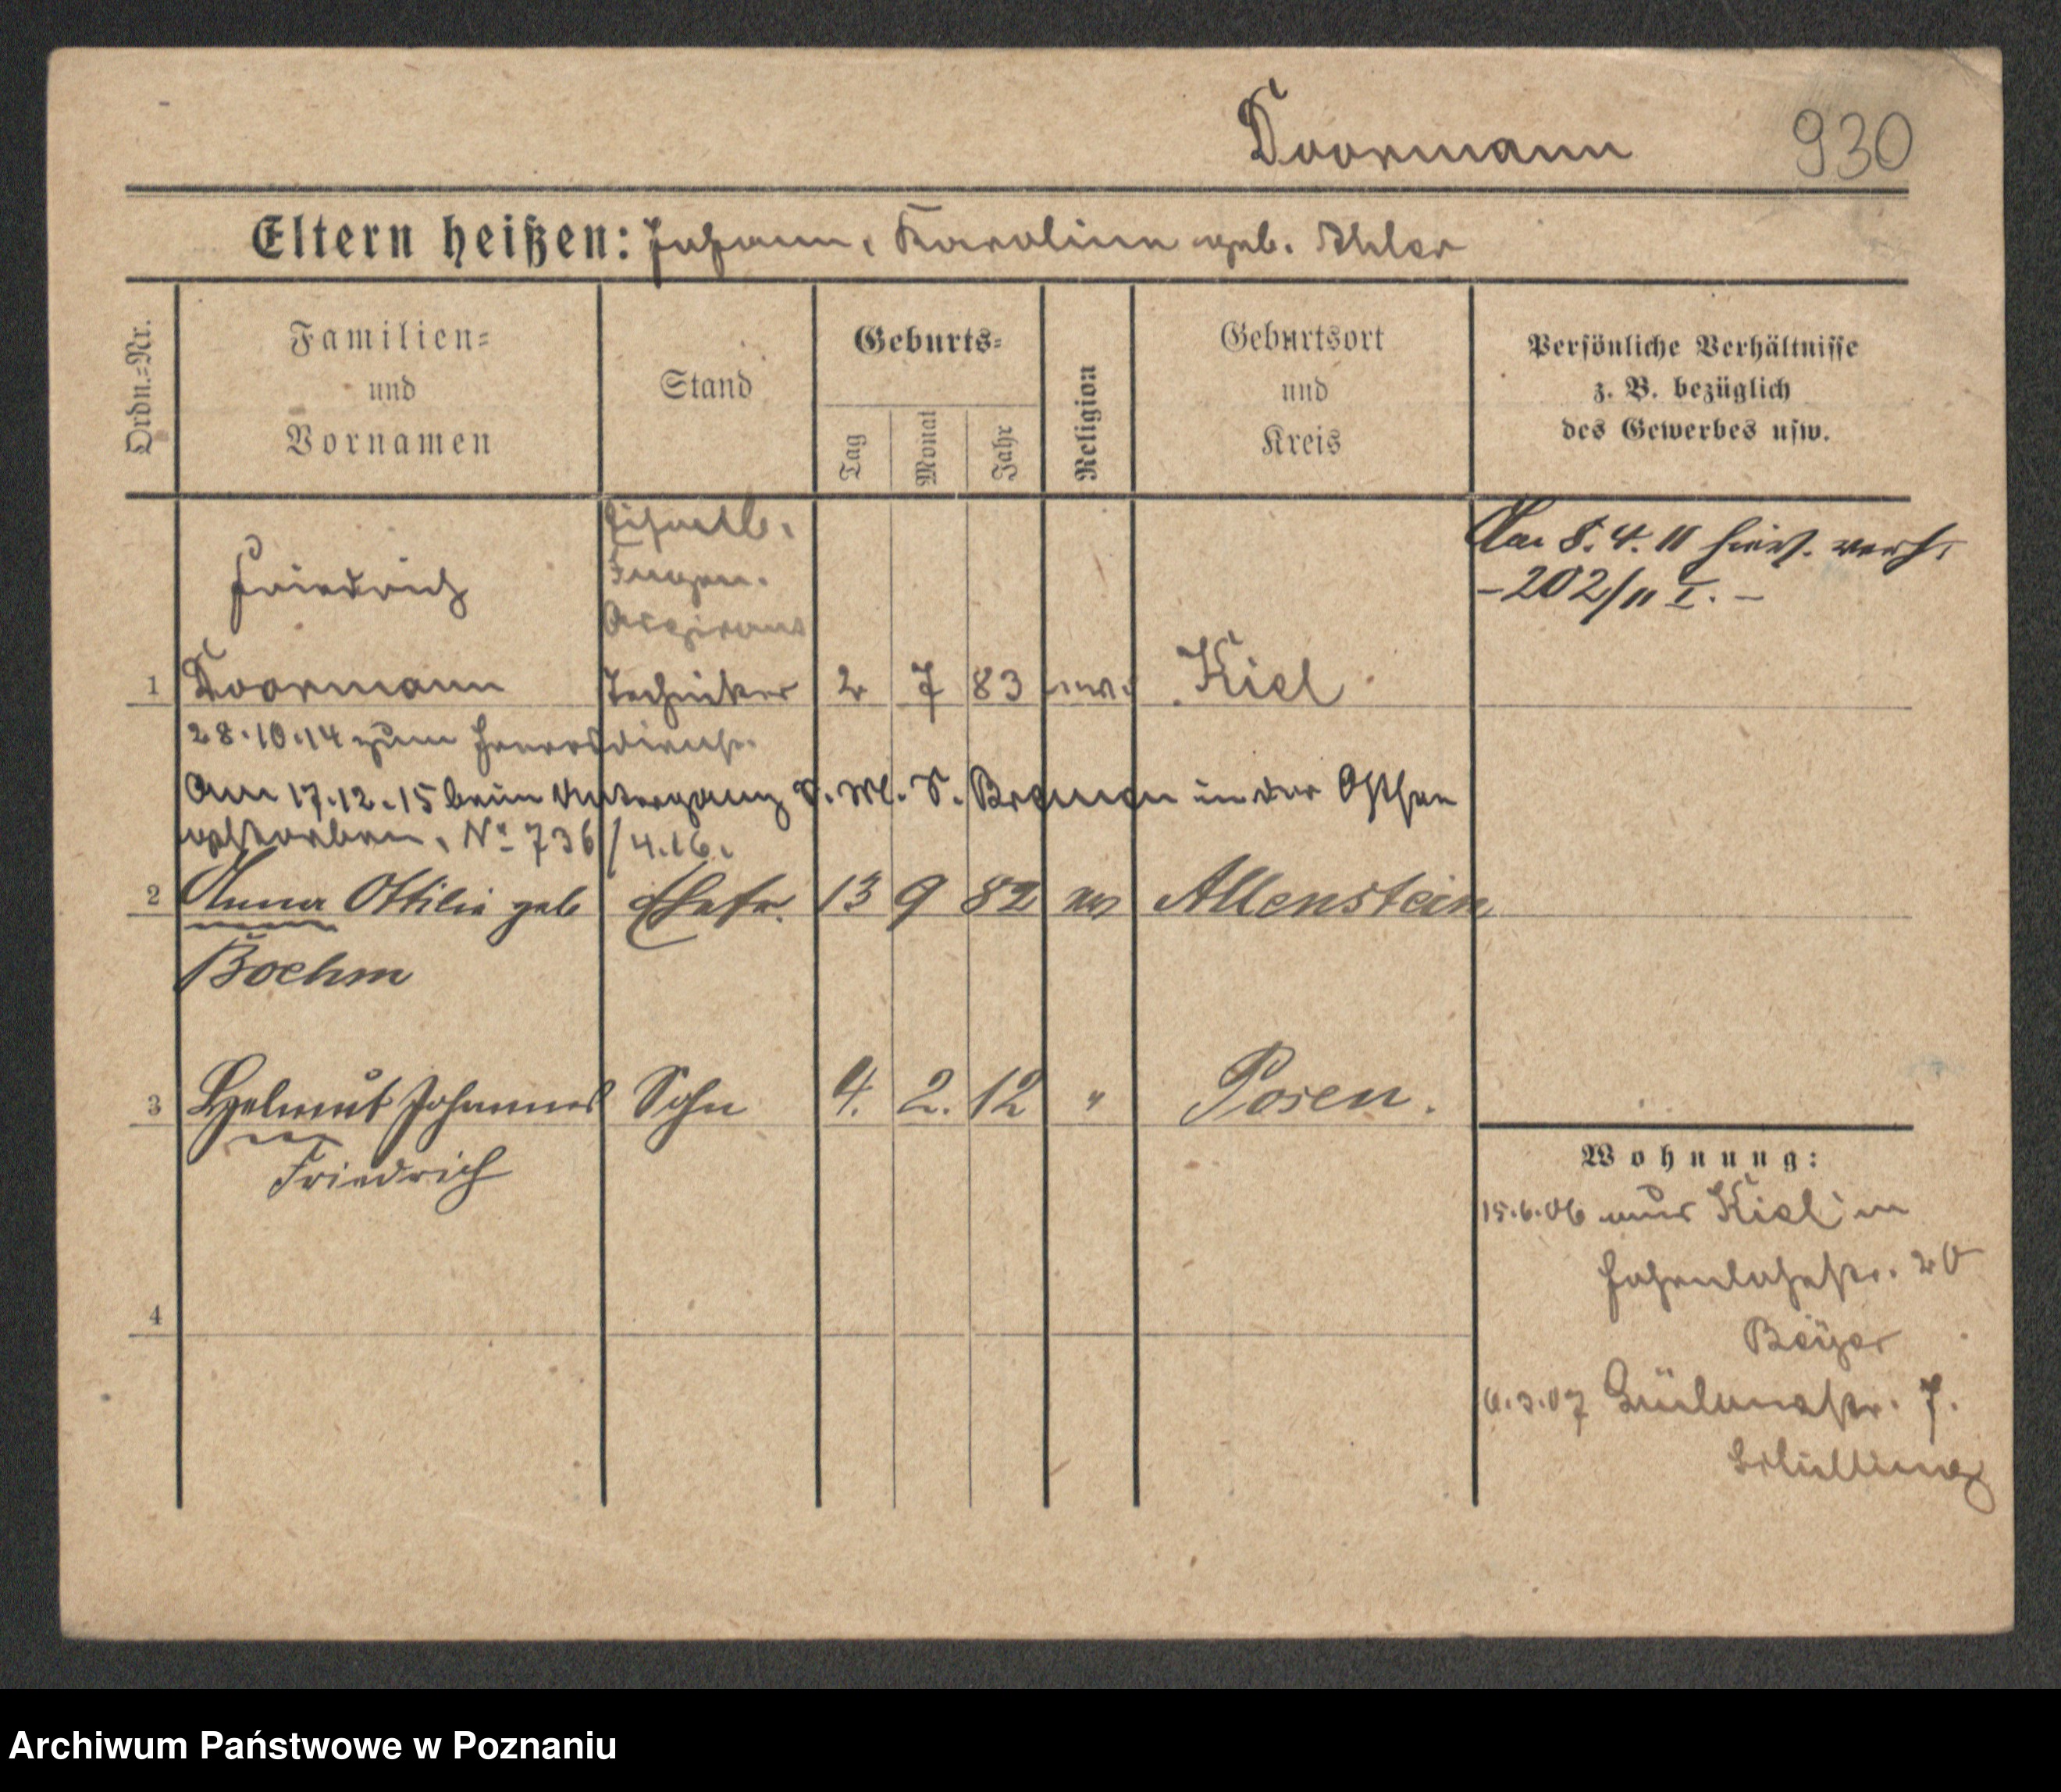 Doormann 930
Eltern heißen: Johann, Karoline geb. Ahler
Ordn.-Nr.
Familien-
und
Vornamen
Stand
Geburts-
Tag
Monat
Jahr
Religion
Geburtsort
und
Kreis
Persönliche Verhältnisse
z. B. bezüglich
des Gewerbes usw.
Am 8.4.11 hier verh.
-202/11 I.-
Friedrich
Ingen.
Aspirant
1 Doormann Techniker 2 7 83 Kiel
28.10.14 zum Heeresdienst
Am 17.12.15 beim Untergang S.M.S. Bremen in der Ostsee
gestorben, No 736/4.16.
2 Anna Ottilie geb Ehefr. 13 9 82 Allenstein
Boehm
3 Helmut Johannes Sohn 4. 2. 12 " Posen.
Friedrich
4
Wohnung:
15.6.06 aus Kiel in
Hohenlohestr. 20
Beyer
6.3.07 7.
Archiwum Państwowe w Poznaniu